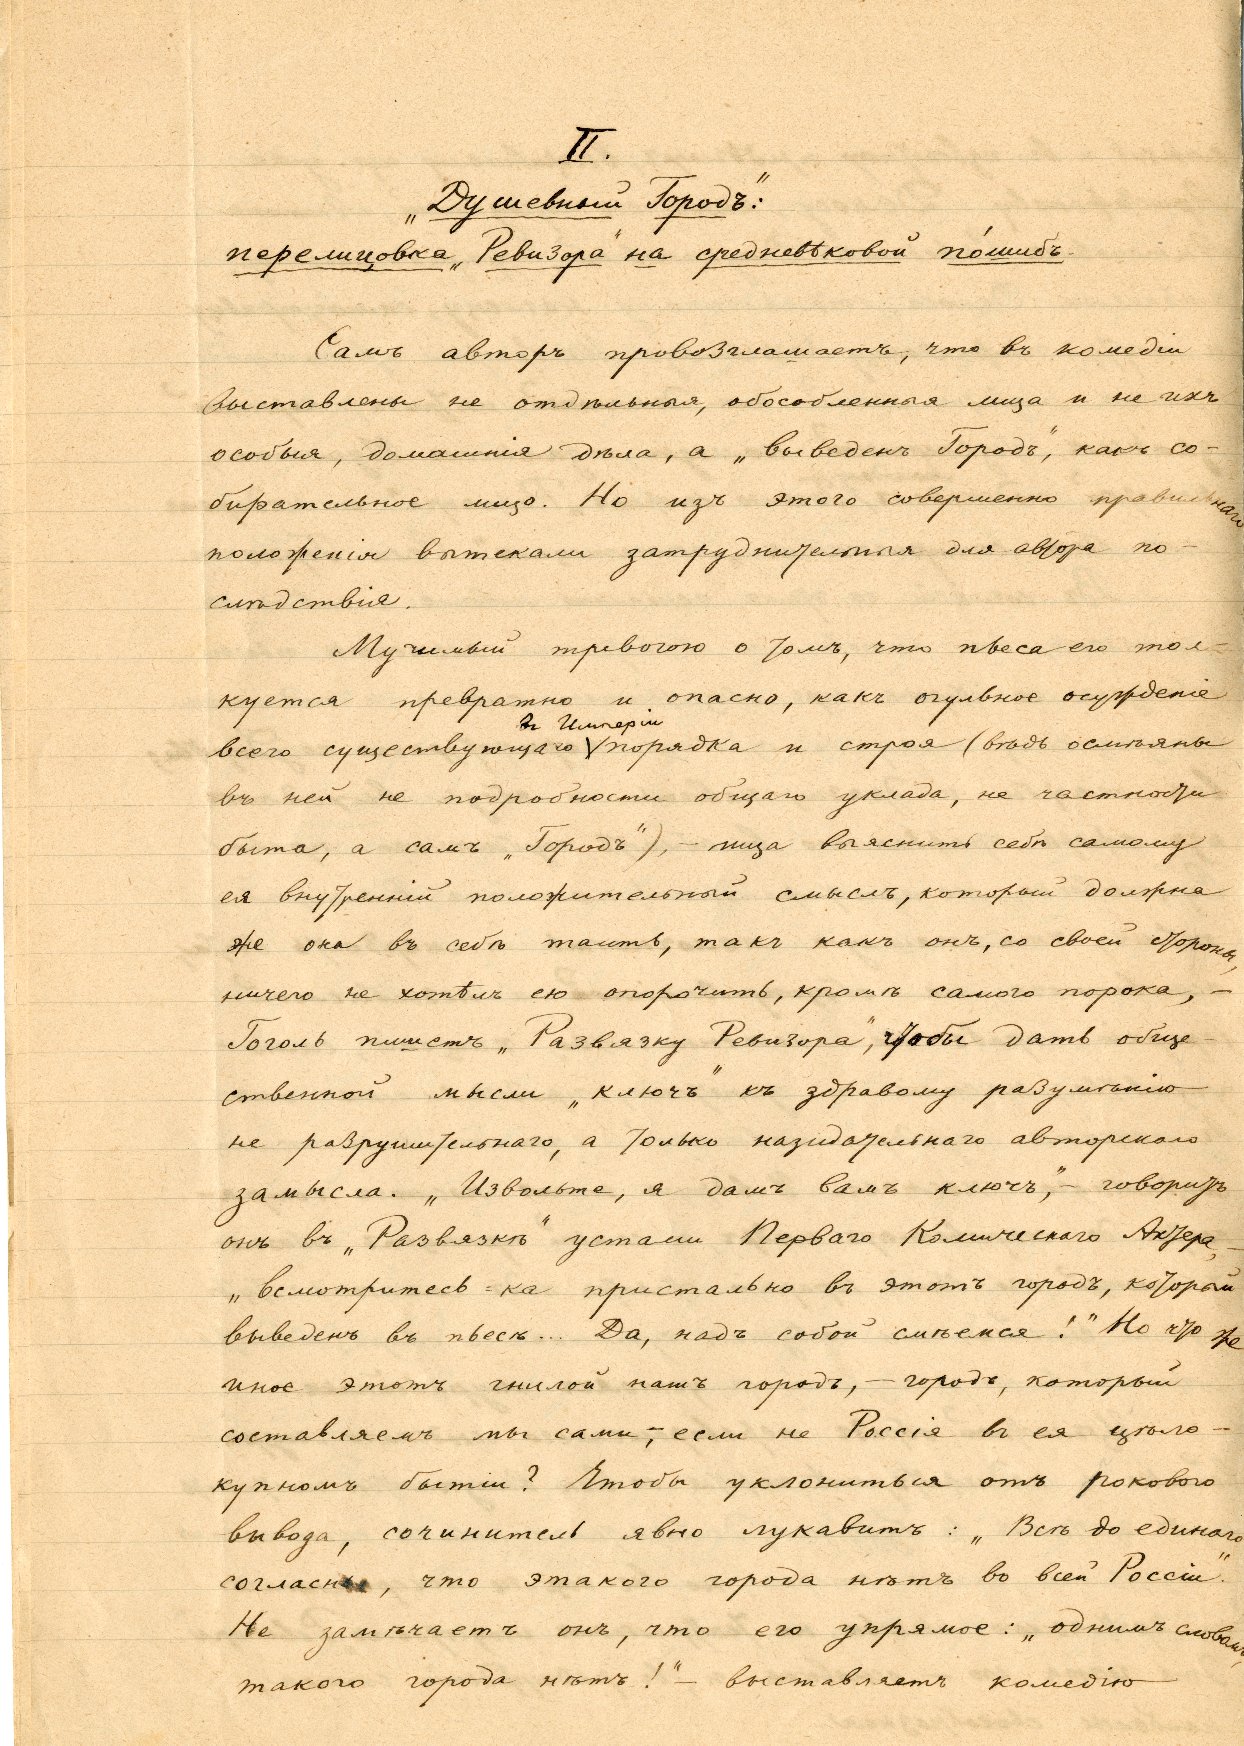 II.
„Душевный Городъ":
перелицовка „Ревизора" на средневѣковой по́шибъ.
Самъ авторъ провозглашаетъ, что въ комедіи
выставлены не отдѣльныя, обособленныя лица и не ихъ
особыя, домашнія дѣла, а „выведенъ Городъ", какъ со-
бирательное лицо. Но изъ этого совершенно правильнаго
положенія вытекали затруднительныя для автора по-
слѣдствія.
Мучимый тревогою о томъ, что пьеса его тол-
куется превратно и опасно, какъ огульное осужденіе
въ Имперіи
всего существующаго порядка и строя (вѣдь осмѣяны
въ ней не подробности общаго уклада, не частности
быта, а самъ „Городъ"), – ища выяснить себѣ самому
ея внутренній положительный смыслъ, который должна
же она въ себѣ таить, такъ какъ онъ, со своей стороны,
ничего не хотѣлъ ею опорочить, кромѣ самого порока, –
Гоголь пишетъ „Развязку Ревизора", чтобы дать обще-
ственной мысли „ключъ" къ здравому разумѣнію
не разрушительнаго, а только назидательнаго авторскаго
замысла. „Извольте, я дамъ вамъ ключъ", – говоритъ
онъ въ „Развязкѣ" устами Перваго Комическаго Актера, –
„всмотритесь-ка пристально въ этотъ городъ, который
выведенъ въ пьесѣ... Да, надъ собой смѣемся!" Но что же
иное этотъ гнилой нашъ городъ, – городъ, который
составляемъ мы сами, – если не Россія въ ея цѣло-
купномъ бытіи? Чтобы уклониться отъ рокового
вывода, сочинитель явно лукавитъ: „Всѣ до единаго
согласны, что этакого города нѣтъ во всей Россіи".
Не замѣчаетъ онъ, что его упрямое: „однимъ словомъ,
такого города нѣтъ!" – выставляетъ комедію